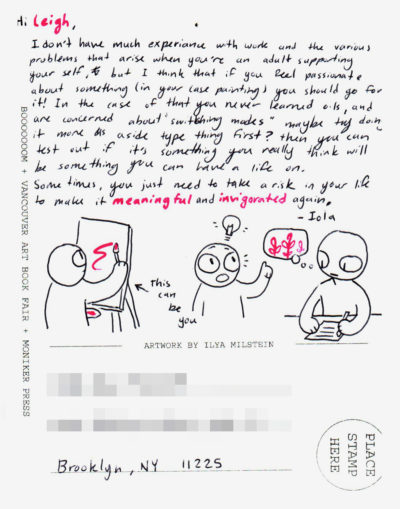 Hi Leigh,
I don't have much experiance with work and the various
problems that arise when you're an adult supporting
your self, but I think that if you feel passionate
about something (in your case painting) you should go for
it! In the case of that you never learned oils, and
are concerned about "switching modes" maybe try doing
it more as aside type thing first? then you can
test out if it's something you really think will
be something you can have a life on.
Some times, you just need to take a risk in your life
to make it meaningful and invigorated again.
- Iola
this
can
be
you
ARTWORK BY ILYA MILSTEIN
BOOOOOOOM + VANCOUVER ART BOOK FAIR + MONIKER PRESS
PLACE
STAMP
HERE
Brooklyn, NY 11225